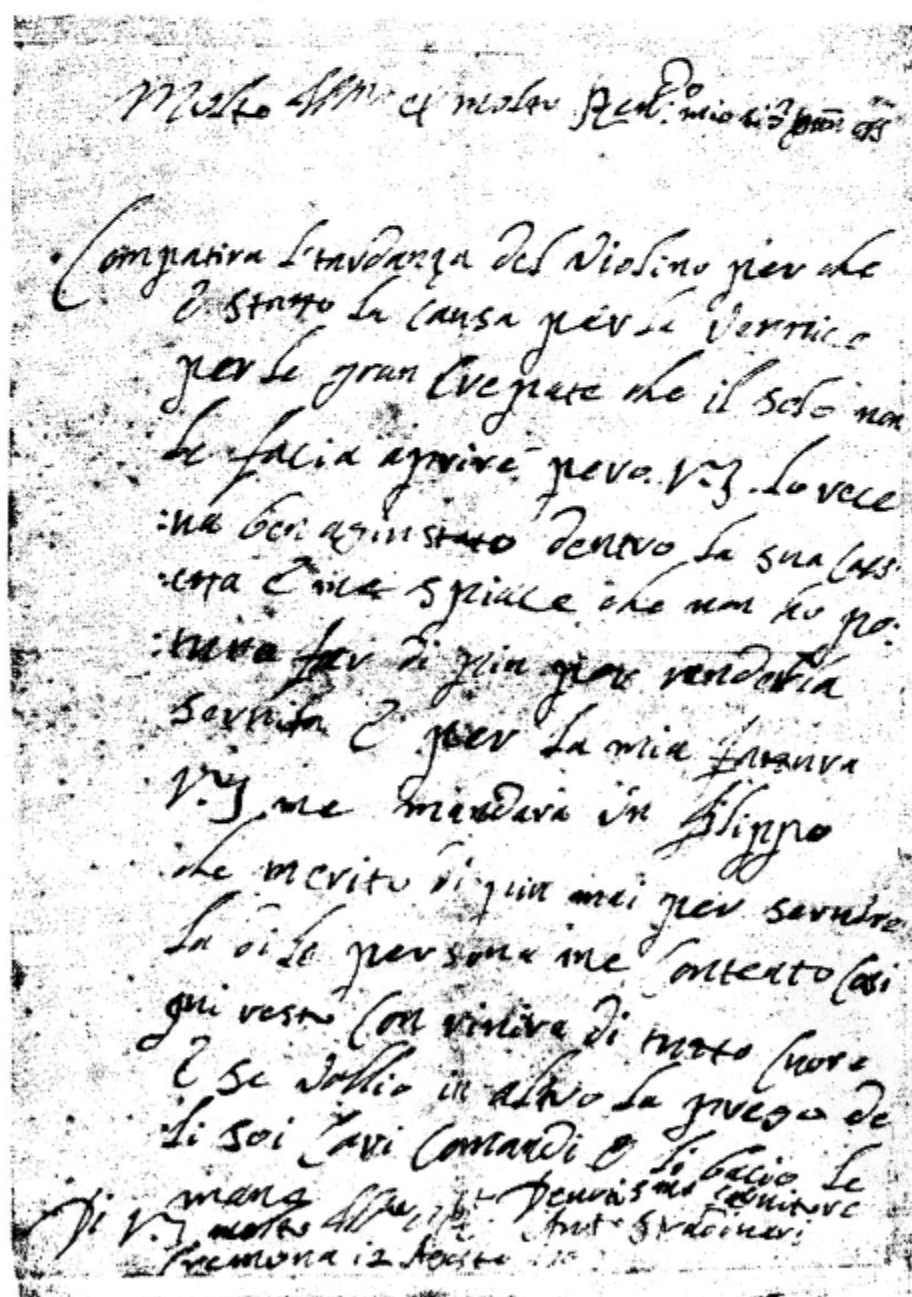 Molto Illmo et molto Revdo mio sigr
Compatira l'tardanza del Violino per che
è statto la causa per la vernice
per le gran Crepate che il sole non
le facia aprire pero V.S. lo rece
:na ben agiustato dentro la sua Cas:
:etta e me spiace che non ho po:
:tuto far di piu per renderla
servita e per la mia fatura
V.S me mandara un filippo
che merito di piu mai per servire
la di le persona me Contento Cosi
qui resto Con rivirire di tutto Cuore
e se vallio in altro la prego de
li soi Cari Comandi e li bacio le
mane
Di V.S molto Illre Devotismo servitore
Anto Stradivari
Cremona 12 Agosto